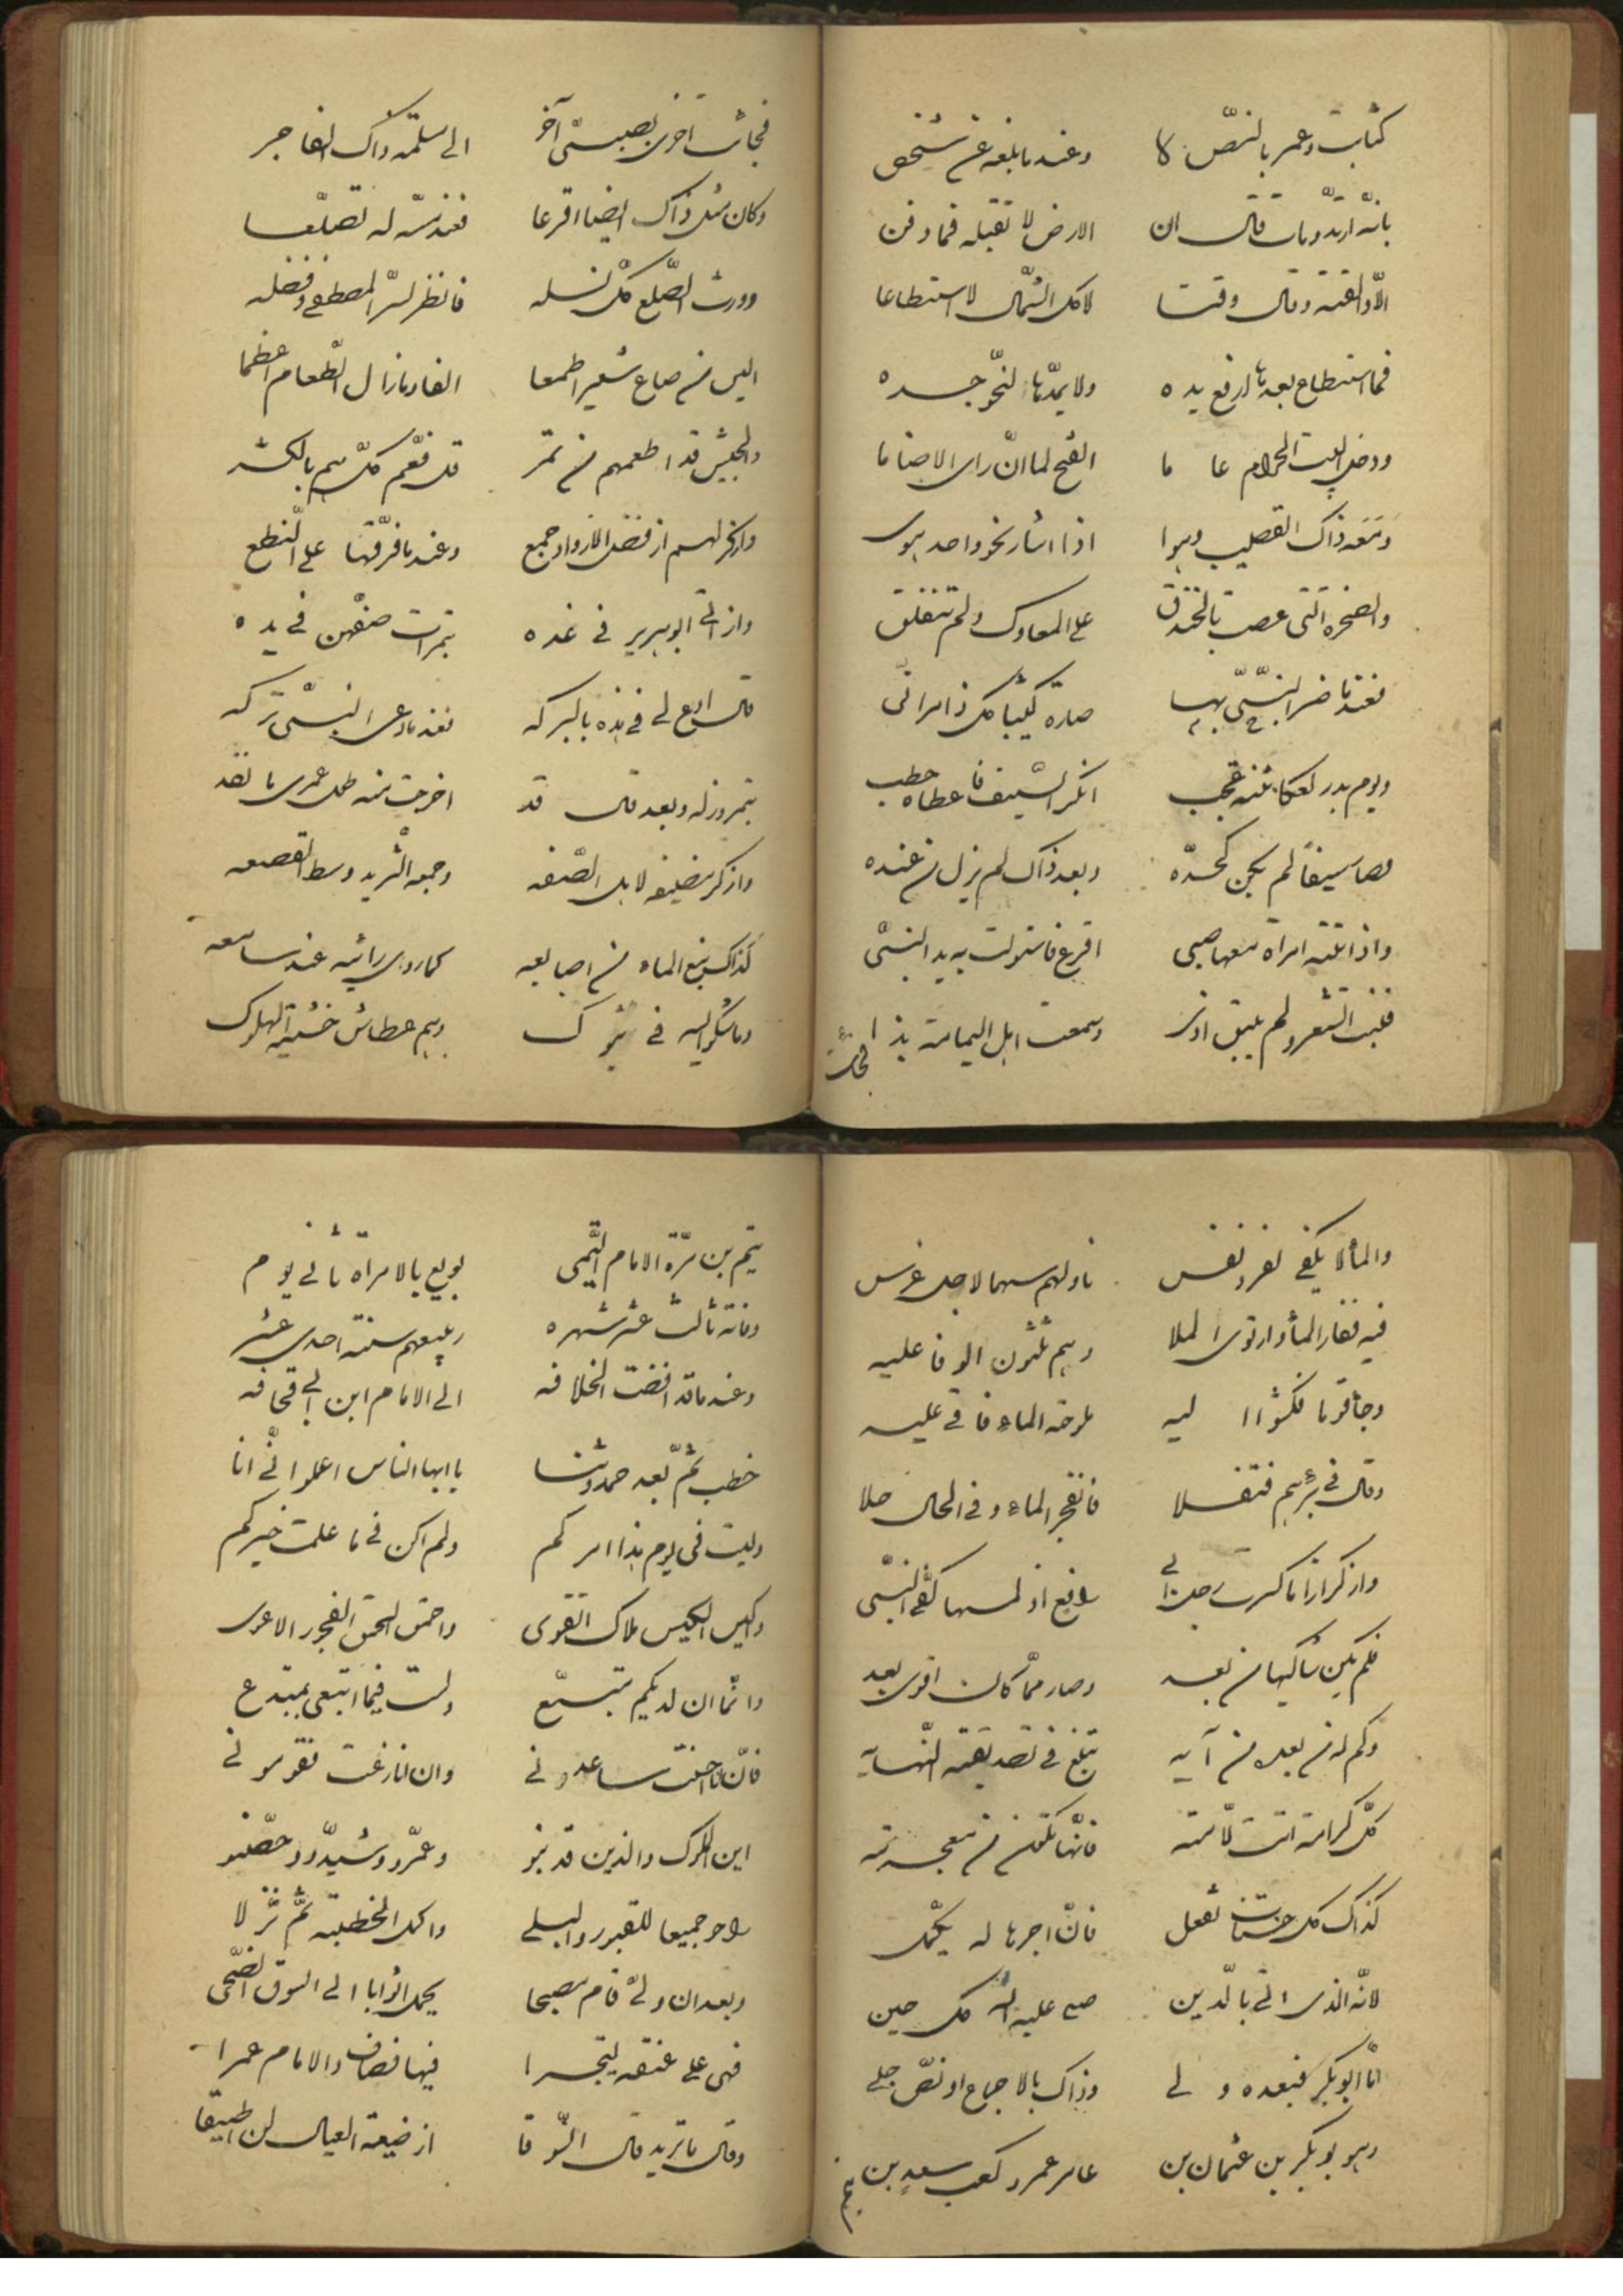 كتابت وعمر بالنص كا وعند ما بلغه عنه شخص
بانه ارتد ومات قال ان الارض لا تقبله فما دفن
الا والقته وقال وقتا لاكل الشمال لا استطاعا
فما استطاع بعدها ارفع يده ولا يمدها لنحو جسده
ودخل البيت الحرام عا ما الفتح لما ان راى الاصناما
ومعه ذاك القضيب وهوا اذا اشار نحو واحد هوى
والصخرة التى عصت بالخندق على المعاول ولم تنفلق
فعندما ضرب النبي بها صارة كثيبا كل ذا مرائى
ويوم بدر لعكاشة عجب انكسر السيف فاعطاه حطب
فصار سيفا لم يكن كحده وبعد ذاك لم يزل من عنده
واذ اتته امراة معها صبى اقرع فاستولت به يد النبى
فنبت الشعر ولم يبق اذى وسمعت اهل اليمامة بذا
فجاءت
فجاءت اخرى بصبى آخر الى مسيلمة ذاك الفاجر
وكان مثل ذاك ايضا اقرعا فعند مسه له تصلعا
وورث الصلع كل نسله فانظر لسر المصطفى وفضله
اليس من صاع شعير اطعما الفا وما زال الطعام اعظما
والجيش قد اطعمهم من تمر قل فعم كلهم بالكثر
واذكر لهم اذ فضل الازواد جمع وعندما فرقها على النطع
واذ اتى ابو هرير فى غده بتمرات صفهن فى يده
قال ادع لى فى هذه بالبركه فعندما دعى النبى تركه
بتمر وزله وبعد قال قد اخرجت منه طول عمرى ما نفد
واذكر مضيفه لاهل الصفه وجمعه الثريد وسط القصعه
كذاك نبع الماء من اصابعه كما روى رائيه عند سامعه
وماشكوا اليه فى تبوك وهم عطاش خشية الهلوك
والماء لا يكفى لفرد نفس ناولهم سهما لاجل غرس
فيه ففار الماء وارتوى الملا وهم ثلثون الوفا عليه
وجاء قوما فكشوا اليه ملوحة الماء فاتى عليه
وقال فى بئرهم فتفلا فانفجر الماء وفى الحال حلا
واذكر اذا ما كسرت رجل ابى رافع اذ لمسها كف النبى
فلم يكن شاكيها من بعد وصار مما كانت اقوى بعد
وكم له من بعد من آيه تبلغ فى تصديقه النهايه
كل كرامة اتت لامته فانها تكون من معجزته
كذاك كل حسنات تفعل فان اجرها له يكمل
لانه الذى اتى بالدين صلى عليه الله كل حين
اما ابو بكر فبعده ولى وذاك بالاجماع او نص جلى
وهو بو بكر بن عثمان بن عامر عمرو كعب سعد بن
تيم
تيم بن مرة الامام التيمى بويع بالامراة ثانى يوم
وفاته ثالث عشر شهره ربيعهم سنة احدى عشر
وعندما قد افضت الخلافه الى الامام ابن ابى قحافه
خطب ثم بعد حمد وثنا يا ايها الناس اعلموا انى انا
وليت فى يوم هذا امركم ولم اكن فى ما علمت خيركم
واكيس الكيس ملاك التقوى واحمق الحمق الفجور الاغوى
وانما ان لديكم متبع ولست فيما ابتغى بمبتدع
فان انا احسنت ساعدونى وان انا زغت فقومونى
اين الملوك والذين قد بنوا وعمروا وشيدوا وحصنوا
راحوا جميعا للقبور والبلى واكمل الخطبة ثم نزلا
وبعد ان ولى قام مصبحا يحمل اثوابا الى السوق الضحى
فهى على عنقه ليتجرا فيها فصادف الامام عمرا
وقال ما تريد قال السوقا از ضيعة العيال لن اطيقا